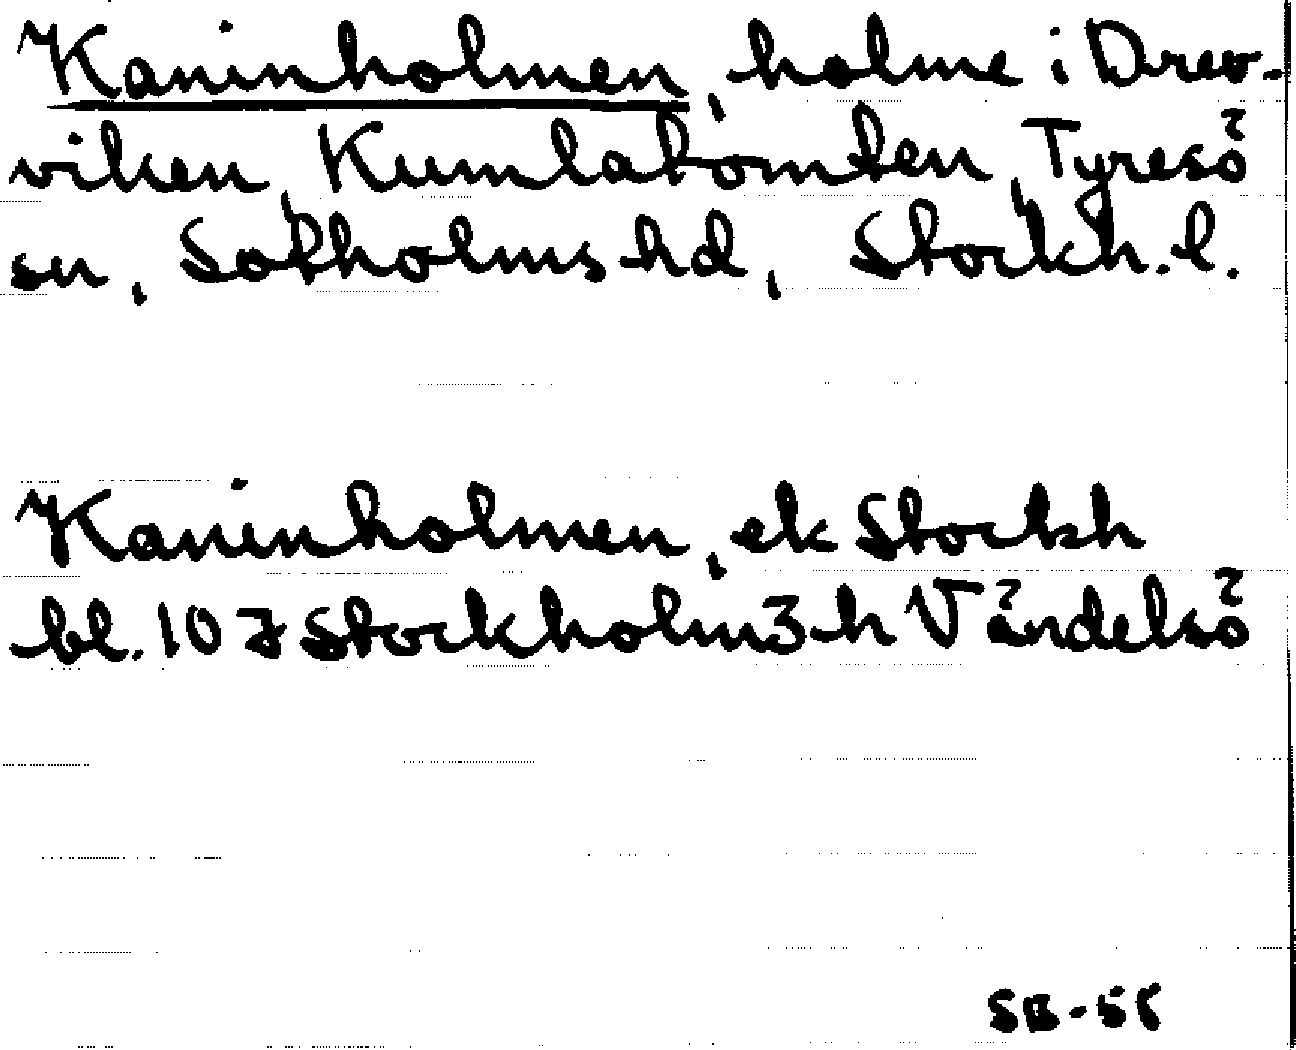 Kaninholmen, holme i Drev-
viken, Kumlatomten, Tyresö
sn, Sotholms hd, Stockh. l.
Kaninholmen, ek Stockh
bl. 10 J Stockholm 3 h Vändelsö
SB-55